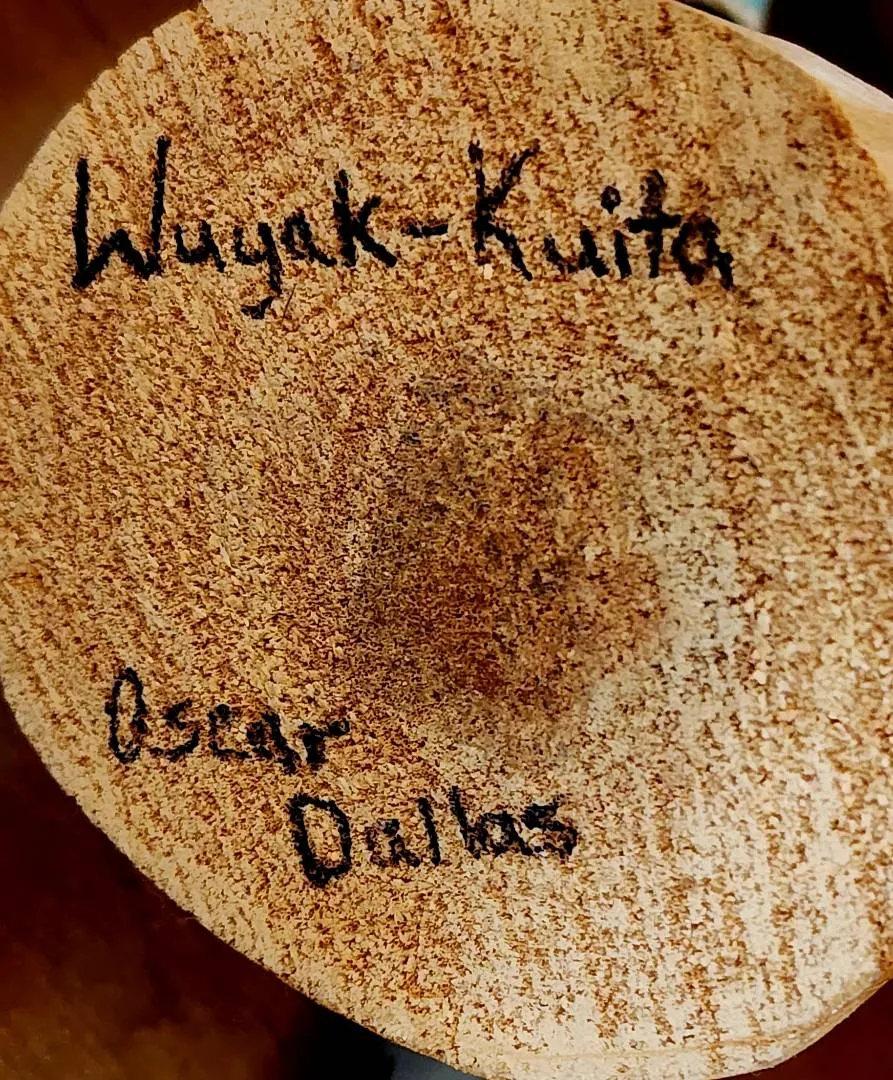 Wuyak-Kuita
Oscar
Dallas